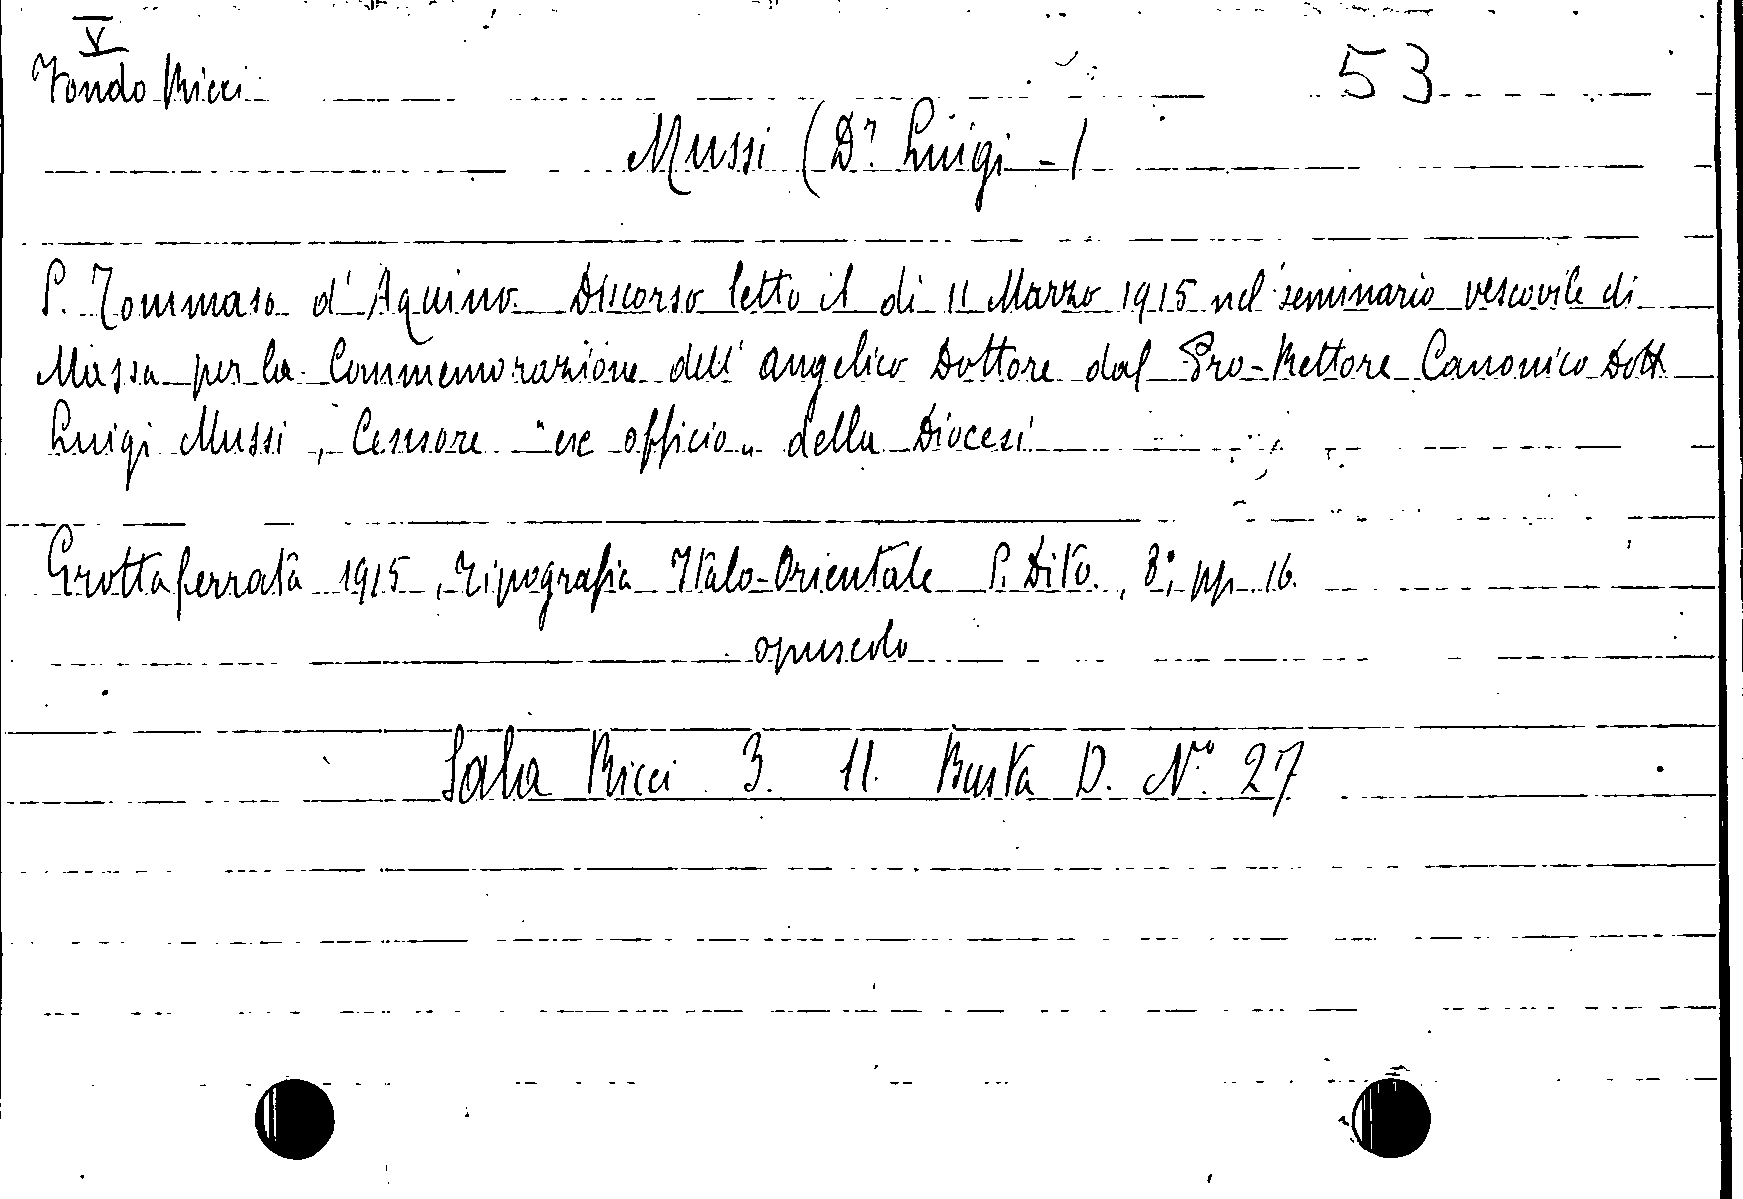 V
Fondo Ricci
53
Mussi (Dr. Luigi -)
S. Tommaso d'Aquino. Discorso letto il di 11 Marzo 1915 nel seminario vescovile di
Massa per la Commemorazione dell'angelico Dottore dal Pro-Rettore Canonico Dott
Luigi Mussi, Censore "ex officio" della Diocesi
Grottaferrata 1915, Tipografia Italo-Orientale S. Nilo., 8°, pp 16.
opuscolo
Sala Ricci 3. 11. Busta D. N° 27